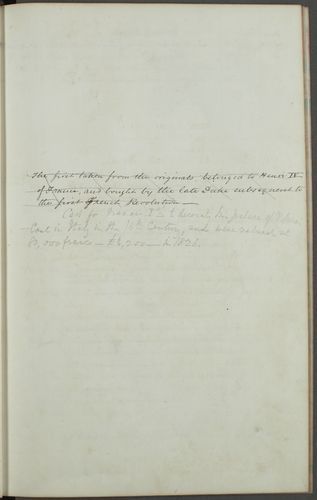 The first taken from the originals belonged to Henri IV
of France, and bought by the late Duke subsequent to
the first French Revolution —
Cast for Francis I to decorate the palace of
Cast in Italy in the 16th Century, and were valued at
80,000 francs — £3,200 — in 1826.